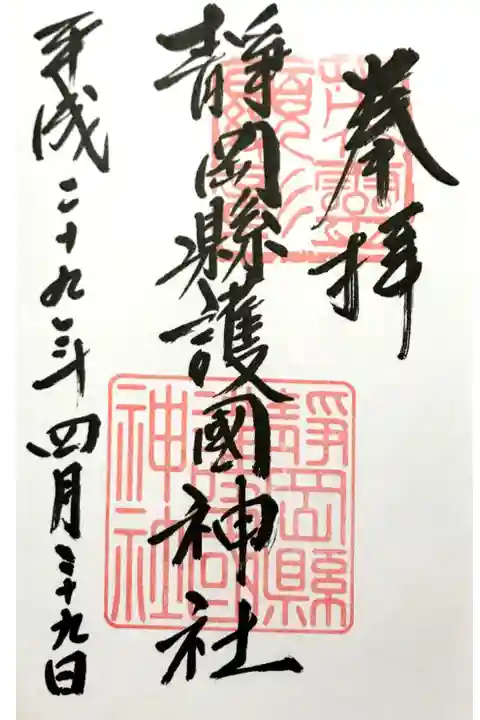 奉拝
靜岡縣護國神社
平成二十九年四月二十九日
靜岡縣
護國
神社